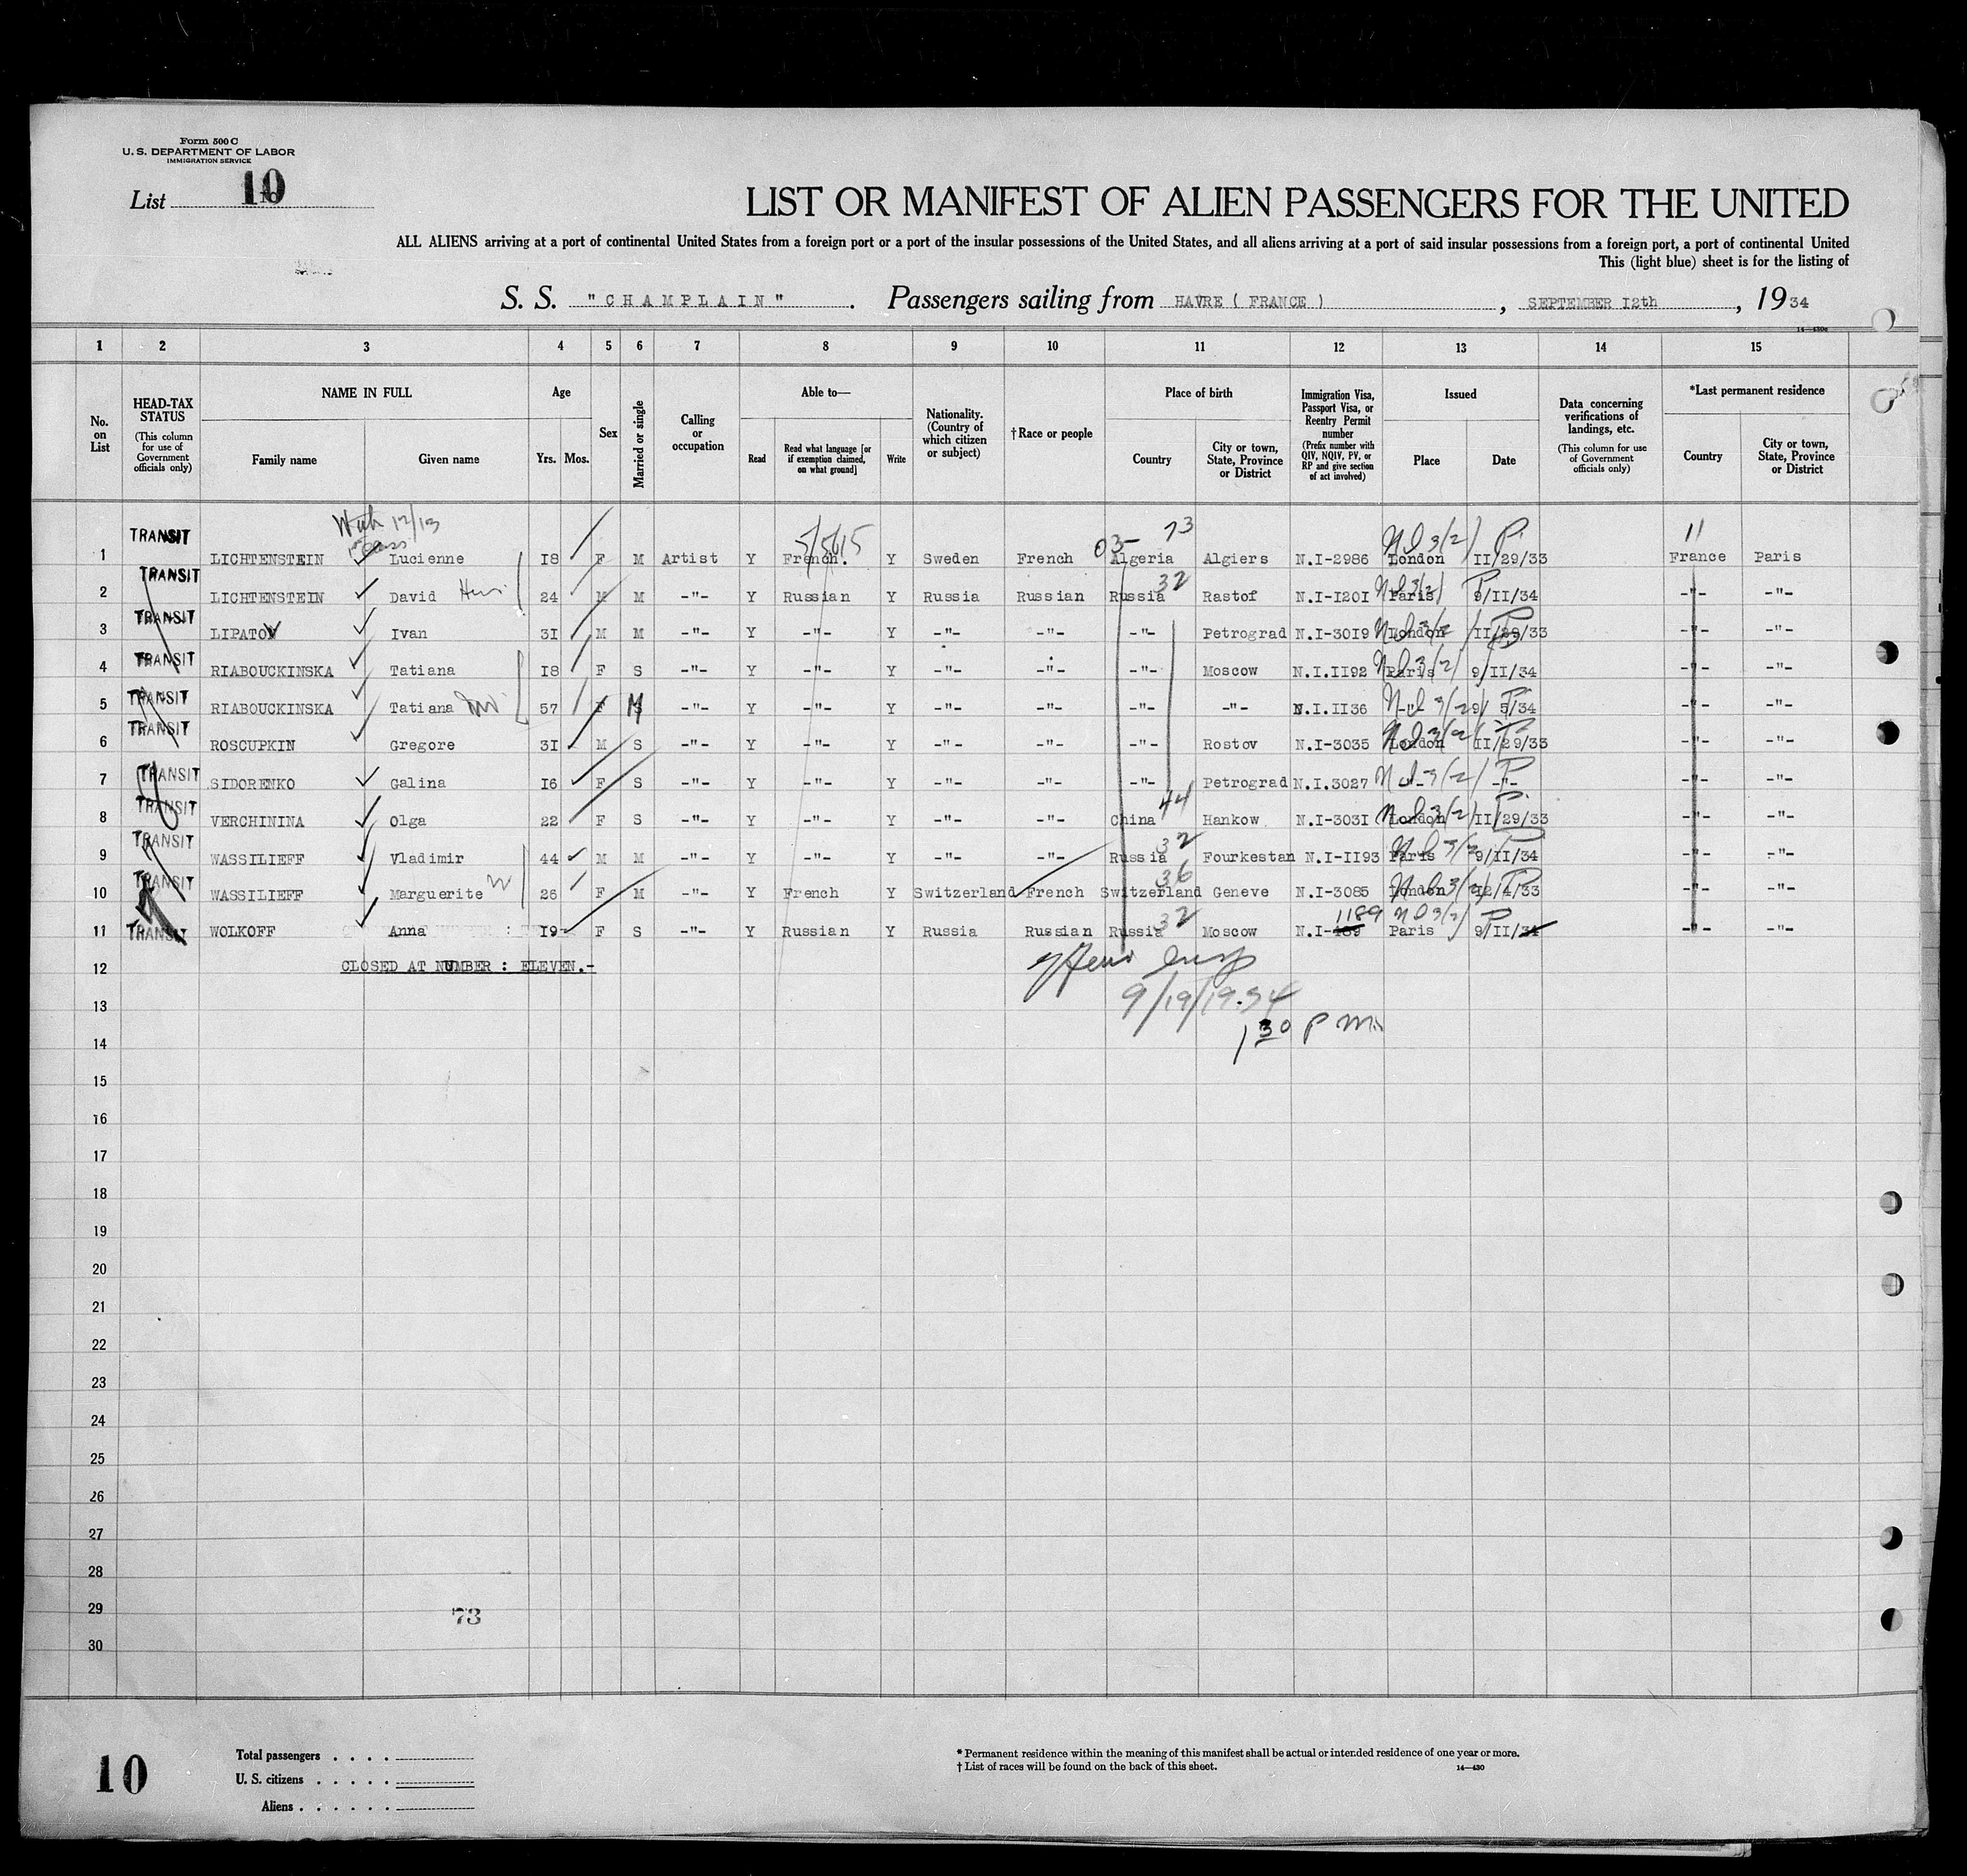 Form 500 C
U. S. DEPARTMENT OF LABOR
IMMIGRATION SERVICE
List 10
LIST OR MANIFEST OF ALIEN PASSENGERS FOR THE UNITED
ALL ALIENS arriving at a port of continental United States from a foreign port or a port of the insular possessions of the United States, and all aliens arriving at a port of said insular possessions from a foreign port, a port of continental United
This (light blue) sheet is for the listing of
S. S. "CHAMPLAIN". Passengers sailing from HAVRE ( FRANCE ), SEPTEMBER I2th, 1934
1 2 3 4 5 6 7 8 9 10 11 12 13 14 15
No. on List
HEAD-TAX STATUS
(This column for use of Government officials only)
NAME IN FULL
Family name Given name
Age
Yrs. Mos.
Sex
Married or single
Calling or occupation
Able to—
Read
Read what language [or if exemption claimed, on what ground]
Write
Nationality. (Country of which citizen or subject)
†Race or people
Place of birth
Country
City or town, State, Province or District
Immigration Visa, Passport Visa, or Reentry Permit number
(Prefix number with QIV, NQIV, PV, or RP and give section of act involved)
Issued
Place Date
Data concerning verifications of landings, etc.
(This column for use of Government officials only)
*Last permanent residence
Country
City or town, State, Province or District
With 12/13 5/5615 73 11
1 TRANSIT LICHTENSTEIN Lucienne I8 F M Artist Y French. Y Sweden French 03- Algeria Algiers N.I-2986 London II/29/33 France Paris
2 TRANSIT LICHTENSTEIN David 24 M M -"- Y Russian Y Russia Russian Russia 32 Rastof N.I-I20I Paris 9/II/34 -"- -"-
3 TRANSIT LIPATOV Ivan 3I M M -"- Y -"- Y -"- -"- -"- Petrograd N.I-30I9 London II/29/33 -"- -"-
4 TRANSIT RIABOUCKINSKA Tatiana I8 F S -"- Y -"- Y -"- -"- -"- Moscow N.I.II92 Paris 9/II/34 -"- -"-
5 TRANSIT RIABOUCKINSKA Tatiana 57 F M -"- Y -"- Y -"- -"- -"- -"- N.I.II36 -"- 9/ 5/34 -"- -"-
6 TRANSIT ROSCUPKIN Gregore 3I M S -"- Y -"- Y -"- -"- -"- Rostov N.I-3035 London II/29/33 -"- -"-
7 TRANSIT SIDORENKO Galina I6 F S -"- Y -"- Y -"- -"- -"- Petrograd N.I.3027 -"- -"- -"- -"-
8 TRANSIT VERCHININA Olga 22 F S -"- Y -"- Y -"- -"- China 44 Hankow N.I-303I London II/29/33 -"- -"-
9 TRANSIT WASSILIEFF Vladimir 44 M M -"- Y -"- Y -"- -"- Russia 32 Fourkestan N.I-II93 Paris 9/II/34 -"- -"-
10 TRANSIT WASSILIEFF Marguerite W 26 F M -"- Y French Y Switzerland French Switzerland 36 Geneve N.I-3085 London I2/4/33 -"- -"-
11 TRANSIT WOLKOFF Anna I9 F S -"- Y Russian Y Russia Russian Russia 32 Moscow N.I-1189 Paris 9/II/34 -"- -"-
12 CLOSED AT NUMBER : ELEVEN.-
13 9/19/1934
14 1 30 P M.
15
16
17
18
19
20
21
22
23
24
25
26
27
28
29 73
30
10
Total passengers
U. S. citizens
Aliens
* Permanent residence within the meaning of this manifest shall be actual or intended residence of one year or more.
† List of races will be found on the back of this sheet. 14—430